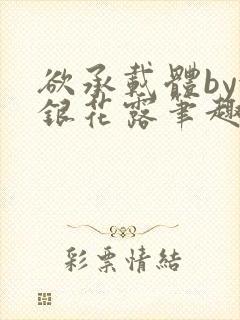 欲承載體by
銀花露筆趣
彩票情結